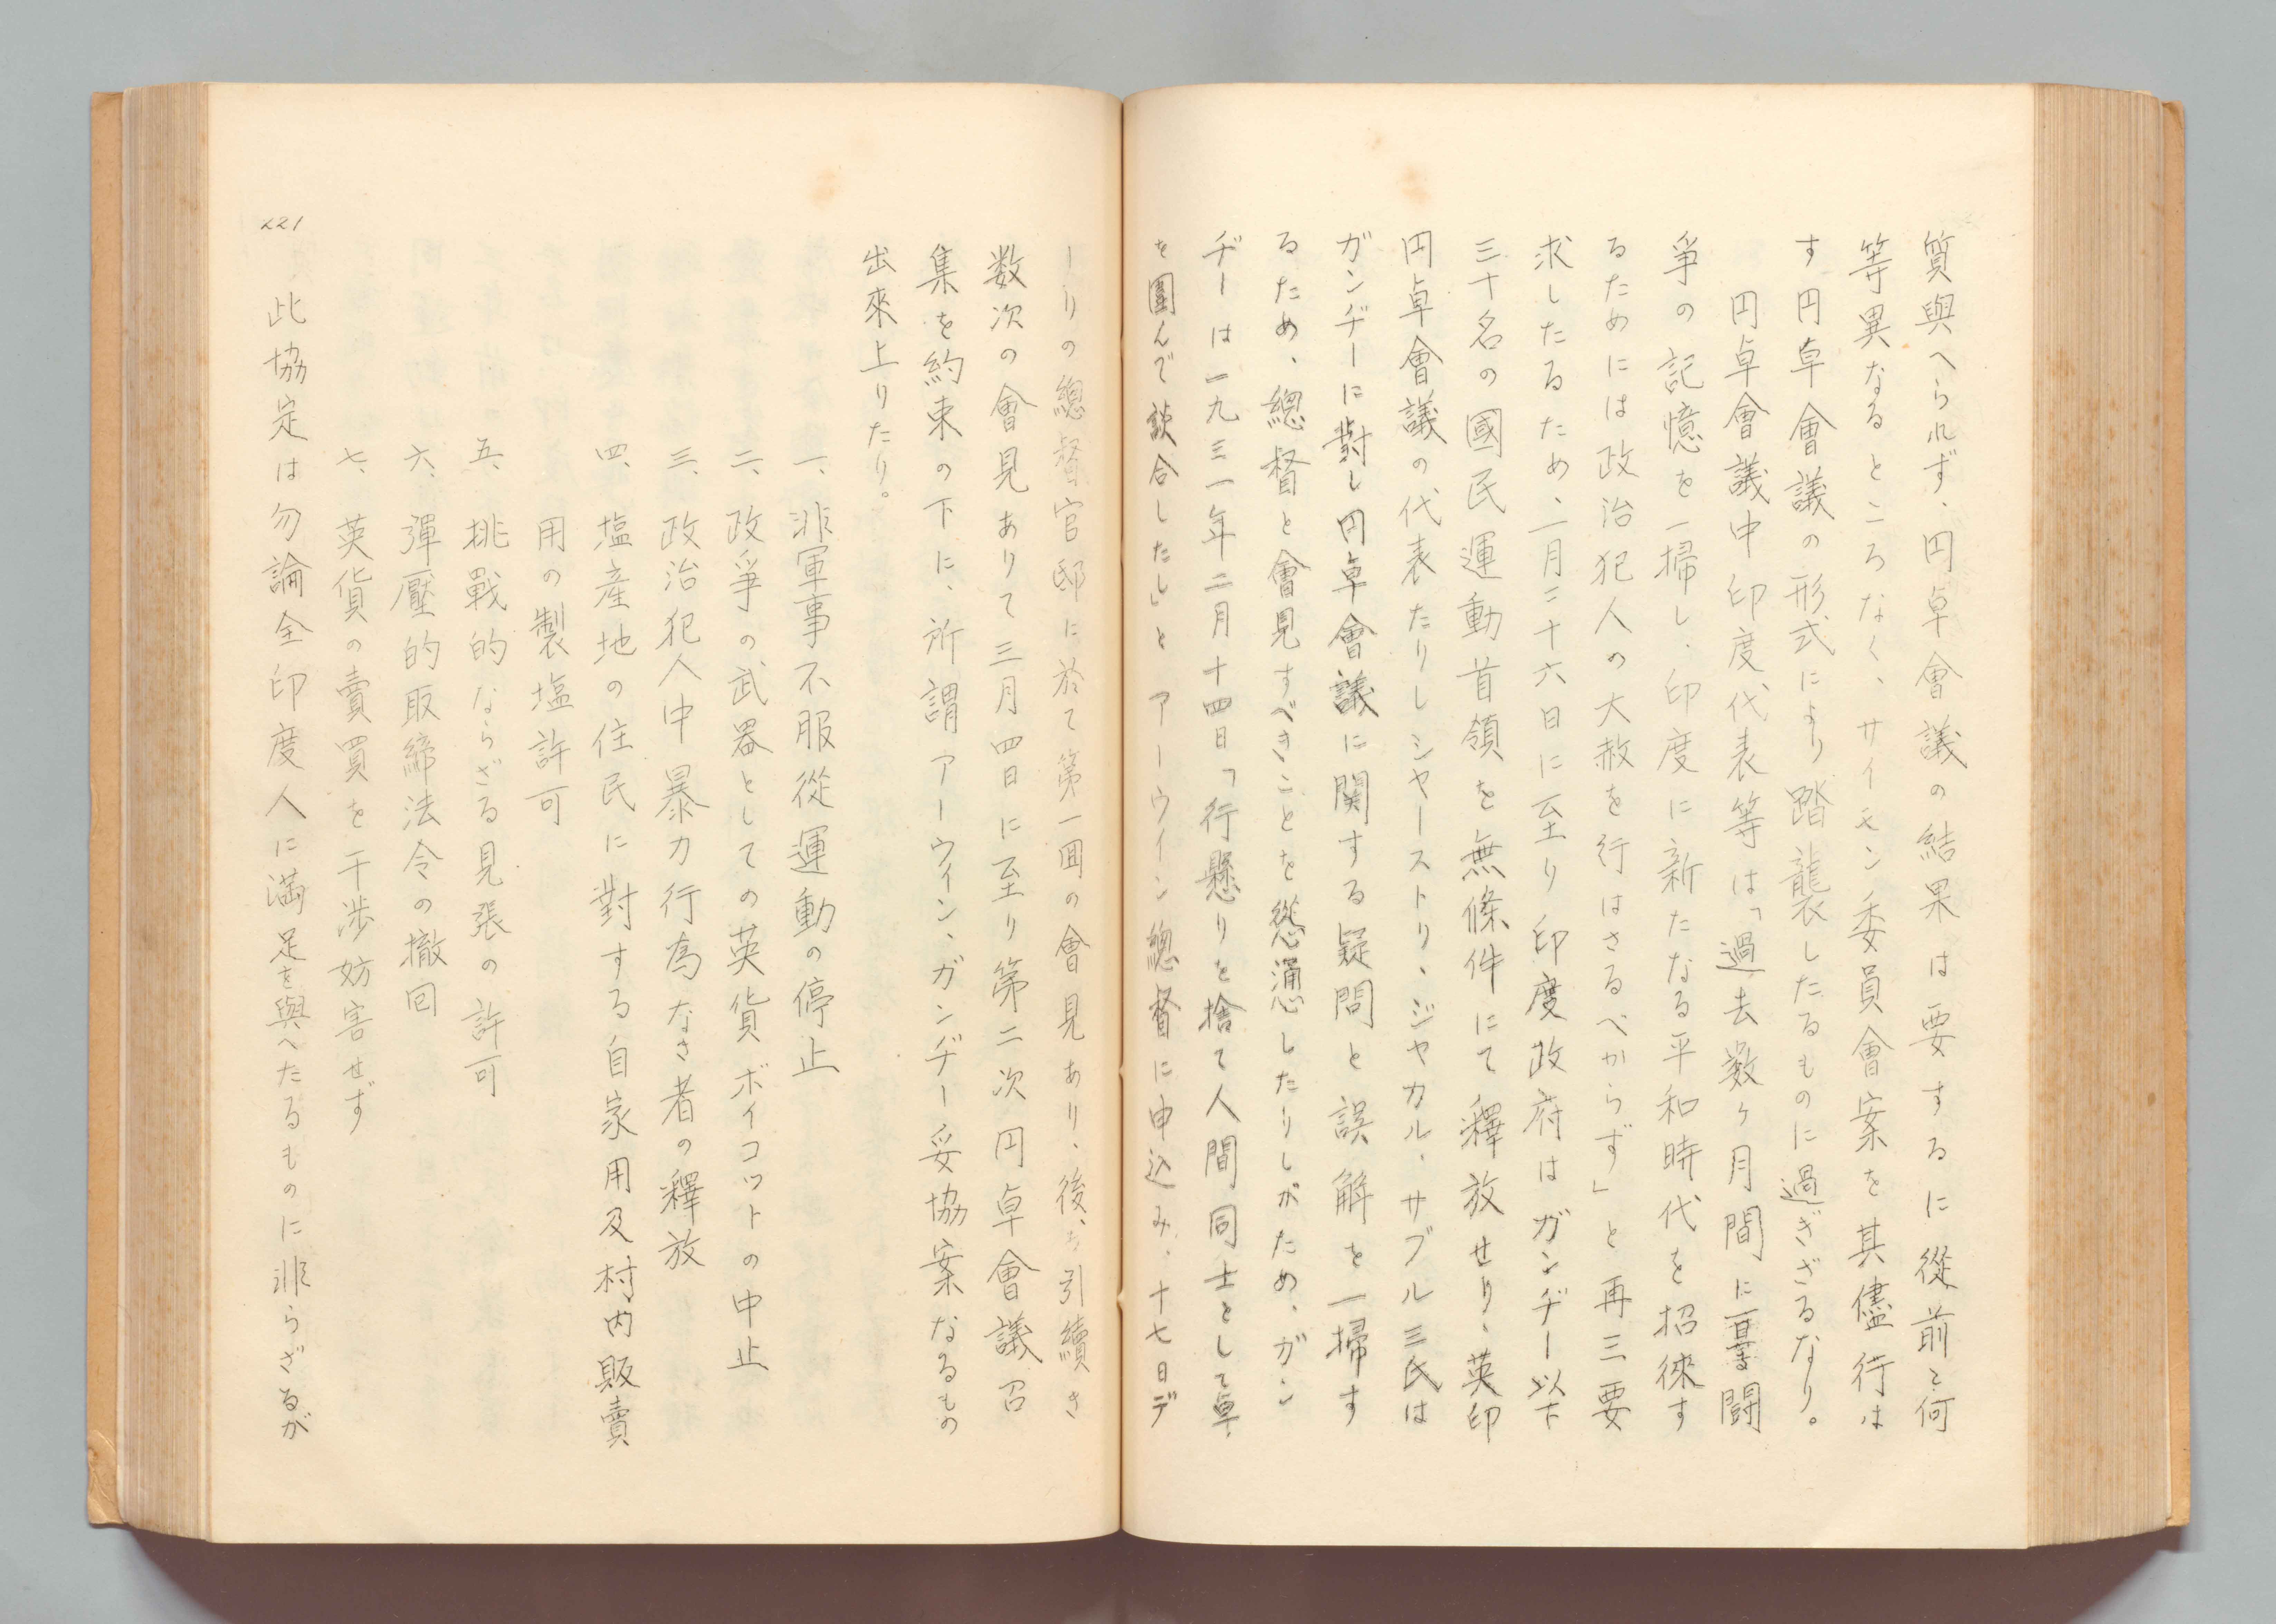 質與へられず、円卓會議の結果は要するに從前と何
等異なるところなく、サイモン委員會案を其儘行は
す円卓會議の形式により踏襲したるものに過ぎざるなり。
円卓會議中印度代表等は「過去数ヶ月間に亘る闘
爭の記憶を一掃し、印度に新たなる平和時代を招徠す
るためには政治犯人の大赦を行はさるべからず」と再三要
求したるため、一月二十六日に至り印度政府はガンヂー以下
三十名の國民運動首領を無條件にて釋放せり、英印
円卓會議の代表たりしシャーストリ、ジャカル、サプル三氏は
ガンヂーに對し円卓會議に関する疑問と誤解を一掃す
るため、總督と會見すべきことを慫慂したりしがため、ガン
ヂーは一九三一年二月十四日「行懸りを捨て人間同士として卓
を圍んで談合したし」とアーウイン總督に申込み、十七日デ
ーリの總督官邸に於て第一囬の會見あり、後、引續き
数次の會見ありて三月四日に至り第二次円卓會議召
集を約束の下に、所謂アーウィン、ガンヂー妥協案なるもの
出來上りたり。
一、非軍事不服從運動の停止
二、政爭の武器としての英貨ボイコットの中止
三、政治犯人中暴力行為なき者の釋放
四、塩産地の住民に對する自家用及村内販賣
用の製塩許可
五、挑戰的ならざる見張の許可
六、彈壓的取締法令の撤囘
七、英貨の賣買を干渉妨害せず
此協定は勿論全印度人に満足を與へたるものに非らざるが
221